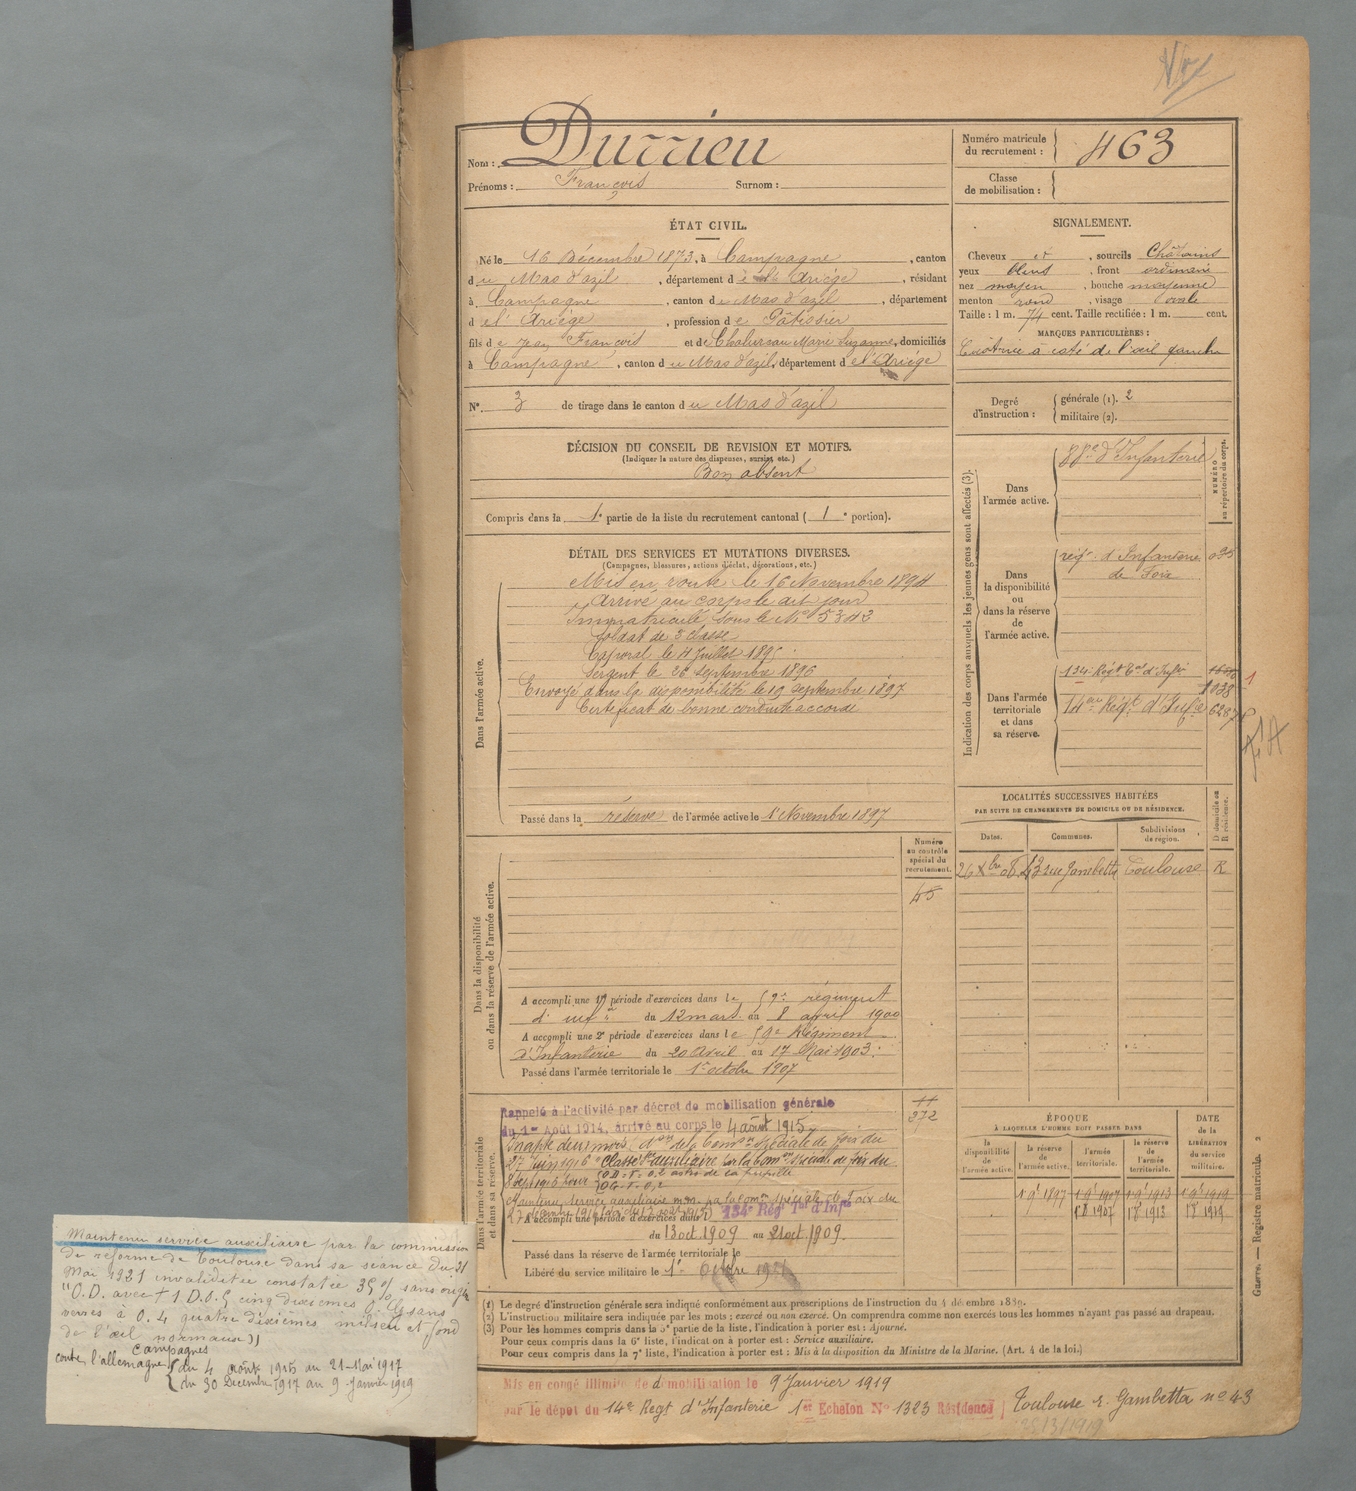 Nom : Durrieu
Prénoms : François Surnom :
Numéro matricule du recrutement : 463
Classe de mobilisation :
ÉTAT CIVIL.
Né le 16 Décembre 1873, à Campagne, canton
du Mas d'azil, département de l'Ariège, résidant
à Campagne, canton du Mas d'azil, département
de l'Ariège, profession de Pâtissier
fils de Jean François et de Marie Suzanne, domiciliés
à Campagne, canton du Mas d'azil, département de l'Ariège
N° 3 de tirage dans le canton du Mas d'azil
SIGNALEMENT.
Cheveux et, sourcils Châtains
yeux bleus, front ordinaire
nez moyen, bouche moyenne
menton rond, visage ovale
Taille : 1 m. 74 cent. Taille rectifiée : 1 m. cent.
MARQUES PARTICULIÈRES :
Cicatrice à coté de l'œil gauche
Degré d'instruction : générale (1). 2
militaire (2).
DÉCISION DU CONSEIL DE REVISION ET MOTIFS.
(Indiquer la nature des dispenses, sursis, etc.)
Bon absent
Compris dans la 1e partie de la liste du recrutement cantonal ( 1e portion).
DÉTAIL DES SERVICES ET MUTATIONS DIVERSES.
(Campagnes, blessures, actions d'éclat, décorations, etc.)
Dans l'armée active.
Mis en route le 16 Novembre 1894
Arrivé au corps le dit jour
Immatriculé sous le N° 5342
Soldat de 2 classe
Caporal le 4 Juillet 1895
Sergent le 26 Septembre 1896
Envoyé dans la disponibilité le 19 septembre 1897
Certificat de bonne conduite accordé
Passé dans la réserve de l'armée active le 1er Novembre 1897
Indication des corps auxquels les jeunes gens sont affectés (3).
NUMÉRO au répertoire du corps.
Dans l'armée active.
88e d'Infanterie
Dans la disponibilité ou dans la réserve de l'armée active.
régt. d'Infanterie
de Foix
Dans l'armée territoriale et dans sa réserve.
134e Régt Tal d'Infie
1038
14e Régt d'Infie 6287
LOCALITÉS SUCCESSIVES HABITÉES
PAR SUITE DE CHANGEMENTS DE DOMICILE OU DE RÉSIDENCE.
Dates. Communes. Subdivisions de région. D domicile ou R résidence.
26 Xbre 08 43 rue Gambetta Toulouse R
Dans la disponibilité ou dans la réserve de l'armée active.
Numéro au contrôle spécial du recrutement.
45
A accompli une 1re période d'exercices dans le 59e régiment
d'infie du 12 mars au 8 avril 1900
A accompli une 2e période d'exercices dans le 59e Régiment
d'Infanterie du 20 Avril au 17 Mai 1903.
Passé dans l'armée territoriale le 1er octobre 1907
Dans l'armée territoriale et dans sa réserve.
11
272
Rappelé à l'activité par décret de mobilisation générale
du 1er Août 1914, arrivé au corps le 4 août 1915
Inapte deux mois don de la Comon spéciale de foix du
27 Juin 1916 Classé Sce auxiliaire par la Comon spéciale de foix du
8 Sept 1916 pour
Maintenu service auxiliaire par la comon spéciale de Foix du
A accompli une période d'exercices dans le 134e Régt Tal d'Infie
du 13 oct. 1909 au 21 oct. 1909.
Passé dans la réserve de l'armée territoriale le
Libéré du service militaire le 1er Octobre 19
ÉPOQUE
À LAQUELLE L'HOMME DOIT PASSER DANS
la disponibilité de l'armée active. la réserve de l'armée active. l'armée territoriale. la réserve de l'armée territoriale.
DATE de la LIBÉRATION du service militaire.
1 9e 1897 1 9e 1907 1 9e 1913 1 9e 1919
(1) Le degré d'instruction générale sera indiqué conformément aux prescriptions de l'instruction du 4 décembre 1889.
(2) L'instruction militaire sera indiquée par les mots : exercé ou non exercé. On comprendra comme non exercés tous les hommes n'ayant pas passé au drapeau.
(3) Pour les hommes compris dans la 5e partie de la liste, l'indication à porter est : Ajourné.
Pour ceux compris dans la 6e liste, l'indication à porter est : Service auxiliaire.
Pour ceux compris dans la 7e liste, l'indication à porter est : Mis à la disposition du Ministre de la Marine. (Art. 4 de la loi.)
Guerre. — Registre matricule. 3
Mis en congé illimité de démobilisation le 9 Janvier 1919
par le dépôt du 14e Regt d'Infanterie 1er Echelon N° 1323 Résidence Toulouse r. Gambetta n° 43
Maintenu service auxiliaire par la commission
de réforme de Toulouse dans sa séance du 31
Mai 1921 invalidité constatée 35 % sans
"O.D. avec + 1 D. 0.5 cinq dixièmes O.G. sans
verres à 0.4 quatre dixièmes milieu et fond
de l'œil normaux))
Campagnes
contre l'allemagne du 4 août 1915 au 21 Mai 1917
du 30 Décembre 1917 au 9 Janvier 1919